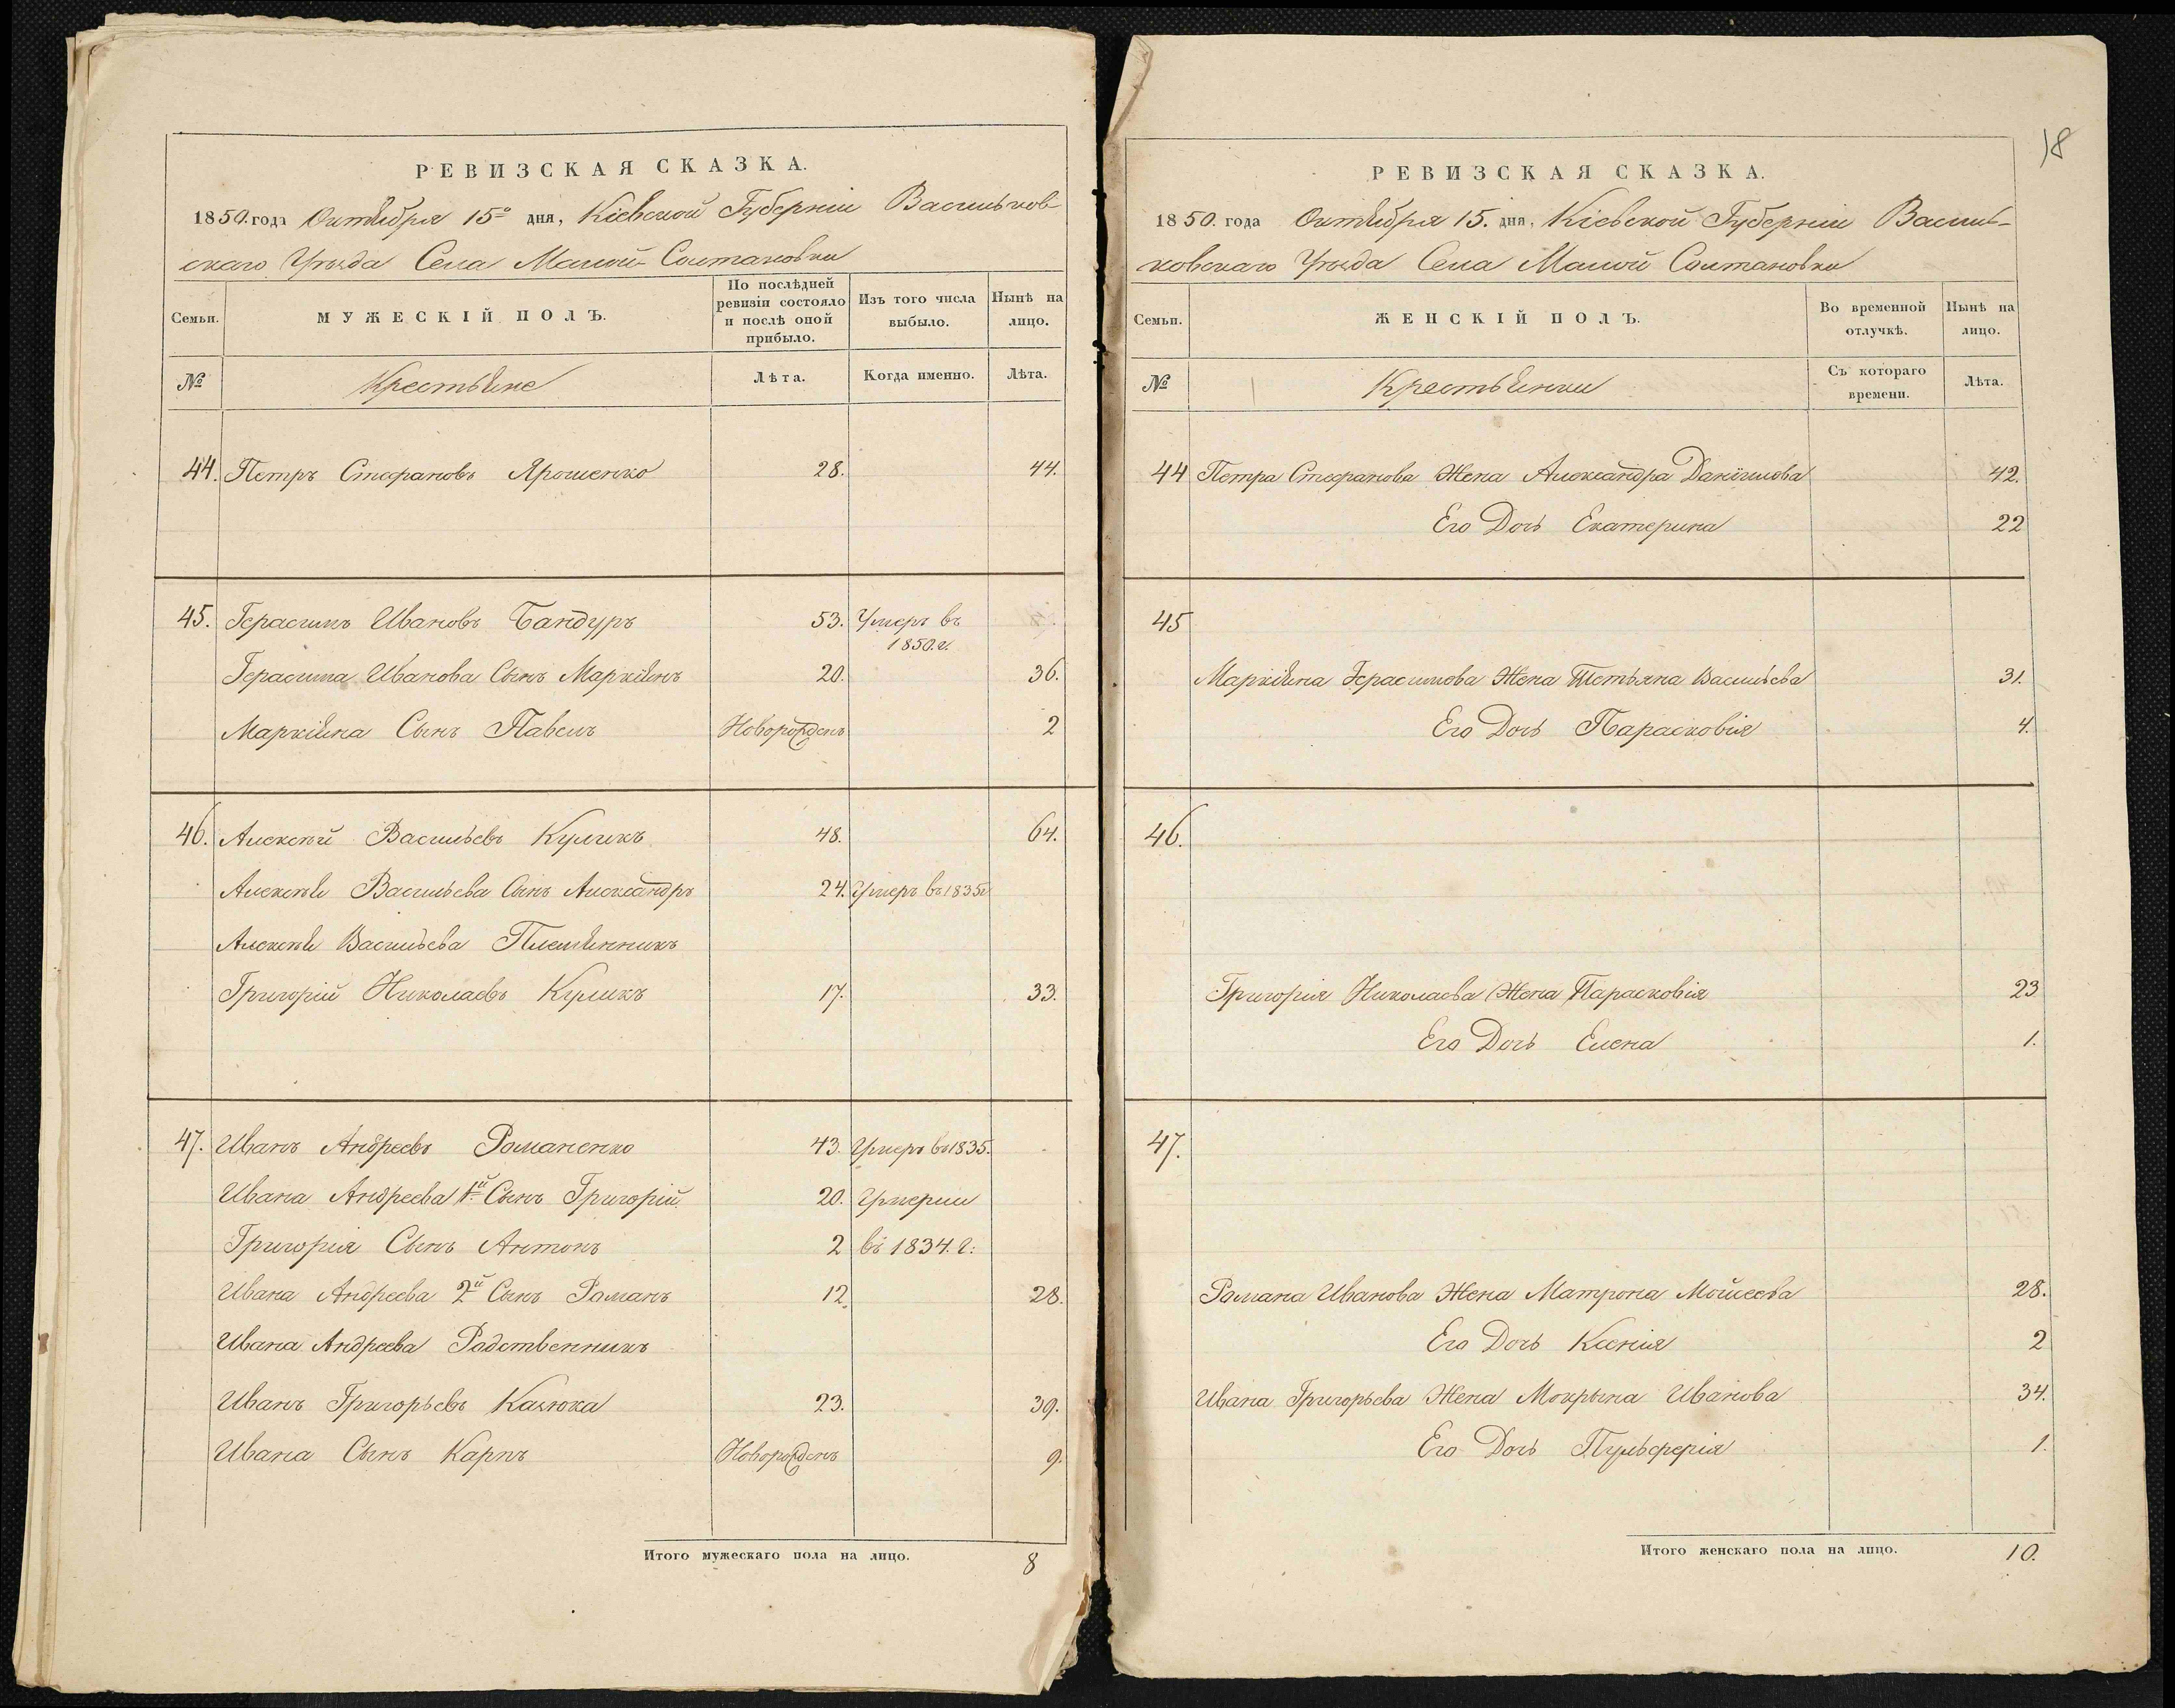 РЕВИЗСКАЯ СКАЗКА.
1850.года Октября 15го дня, Кіевской Губерніи Васильков-
скаго Уѣзда Села Малой-Солтановки
Семьи.
МУЖЕСКІЙ ПОЛЪ.
По послѣдней ревизіи состояло и послѣ оной прибыло.
Изъ того числа выбыло.
Нынѣ на лицо.
№
Крестьяне
Лѣта.
Когда именно.
Лѣта.
44. Петръ Стефановъ Ярошенко 28. 44.
45. Герасимъ Ивановъ Бандуръ 53. Умеръ въ 1850.г.
Герасима Иванова Сынъ Маркіянъ 20. 36.
Маркіяна Сынъ Павелъ Новорожденъ 2
46. Алексѣй Васильевъ Куликъ 48. 64.
Алексѣя Васильева Сынъ Александръ 24. Умеръ въ 1835г
Алексѣя Васильева Племянникъ
Григорій Николаевъ Куликъ 17. 33.
47. Иванъ Андреевъ Романенко 43. Умеръ въ 1835.
Ивана Андреева 1й Сынъ Григорій 20. Умерли
Григорія Сынъ Антонъ 2 въ 1834.г:
Ивана Андреева 2й Сынъ Романъ 12. 28.
Ивана Андреева Родственникъ
Иванъ Григорьевъ Казюка 23. 39.
Ивана Сынъ Карпъ Новорожденъ 9.
Итого мужескаго пола на лицо. 8
18
РЕВИЗСКАЯ СКАЗКА.
1850. года Октября 15. дня, Кіевской Губерніи Василь-
ковскаго Уѣзда Села Малой Солтановки
Семьи.
ЖЕНСКІЙ ПОЛЪ.
Во временной отлучкѣ.
Нынѣ на лицо.
№
Крестьянки
Съ котораго времени.
Лѣта.
44 Петра Стефанова Жена Александра Даніилова 42.
Его Дочь Екатерина 22
45
Маркіяна Герасимова Жена Тетьяна Васильева 31.
Его Дочь Парасковія 4.
46.
Григорія Николаева Жена Парасковія 23
Его Дочь Елена 1.
47.
Романа Иванова Жена Матрона Мойсеева 28.
Его Дочь Ксенія 2
Ивана Григорьева Жена Мокрына Иванова 34.
Его Дочь Пульферія 1.
Итого женскаго пола на лицо. 10.